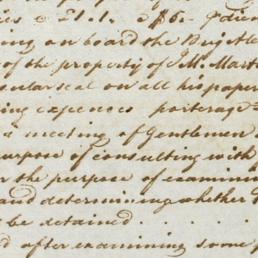 ing on board the Brig Ale
of the property of Mr. Mart
ular seal on all his paper
ing expences porterage
a meeting of Gentlemen
urpose of consulting with
r the purpose of examinin
and determining whether
be detained . . . . .
d after examining some p